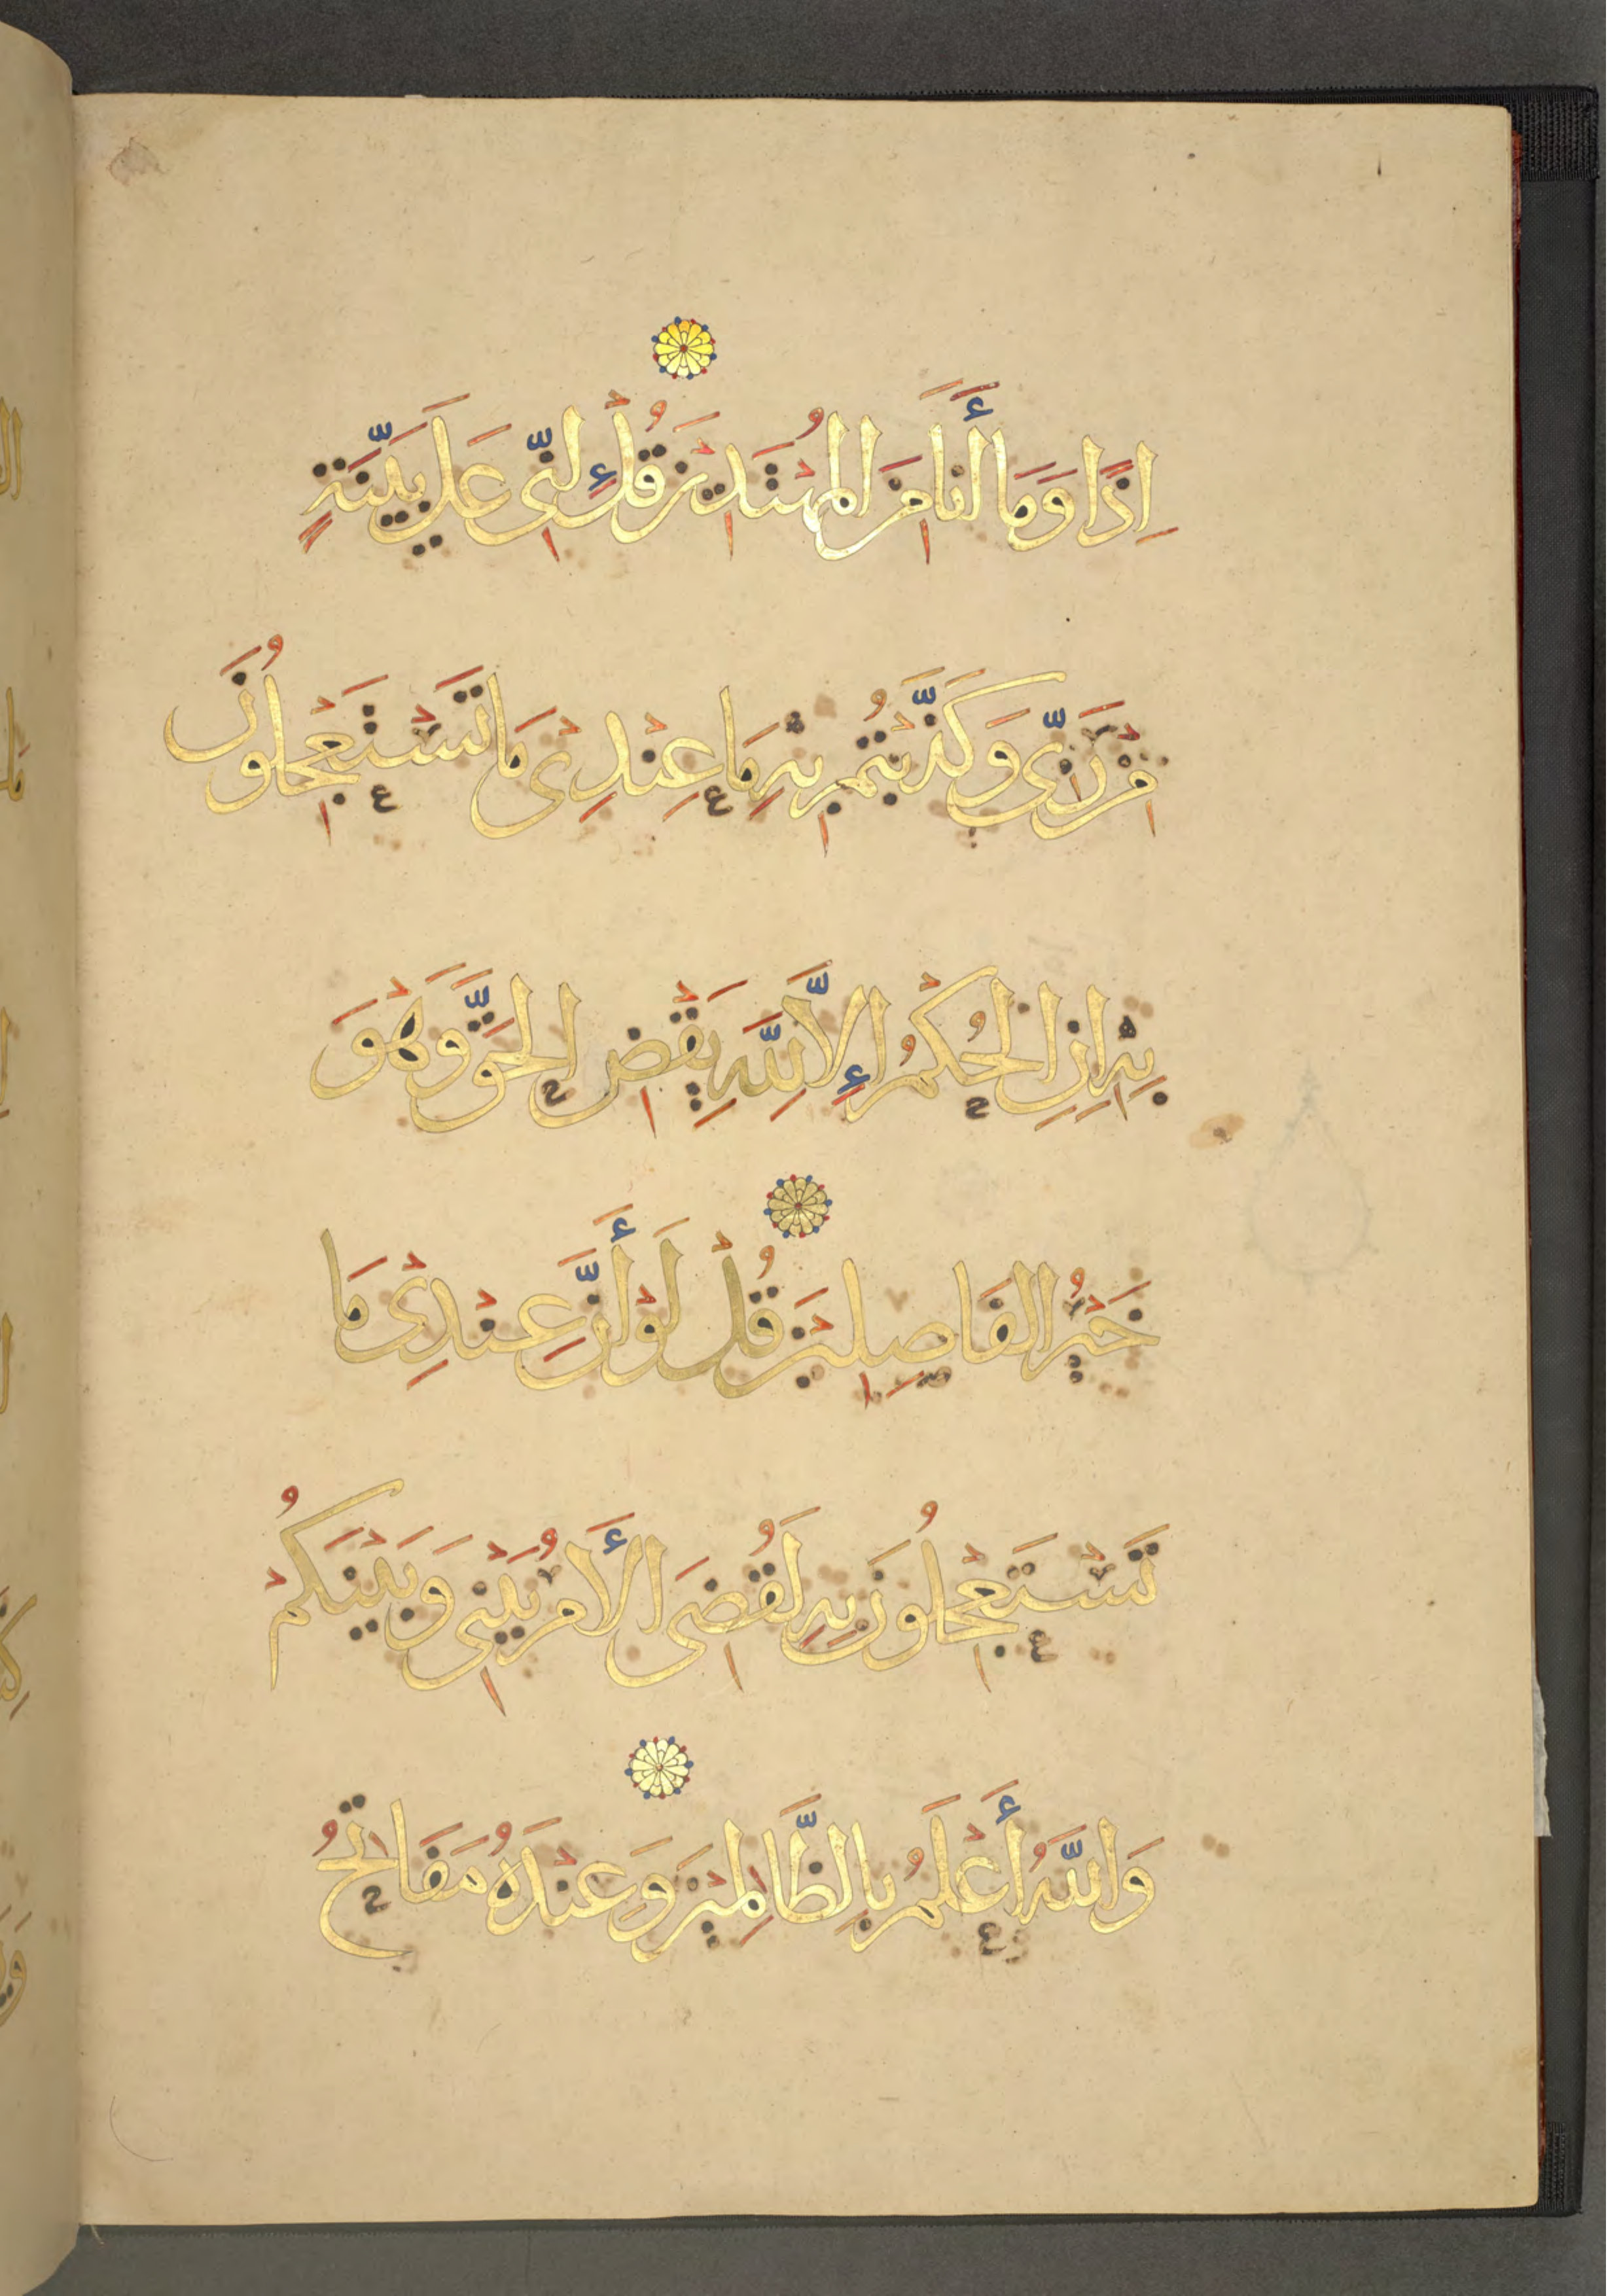 إِذًا وَمَا أَنَا مِنَ الْمُهْتَدِينَ قُلْ إِنِّي عَلَى بَيِّنَةٍ
مِنْ رَبِّي وَكَذَّبْتُمْ بِهِ مَا عِنْدِي مَا تَسْتَعْجِلُونَ
بِهِ إِنِ الْحُكْمُ إِلَّا لِلَّهِ يَقْضِ الْحَقَّ وَهْوَ
خَيْرُ الْفَاصِلِينَ قُلْ لَوْ أَنَّ عِنْدِي مَا
تَسْتَعْجِلُونَ بِهِ لَقُضِيَ الْأَمْرُ بَيْنِي وَبَيْنَكُمْ
وَاللَّهُ أَعْلَمُ بِالظَّالِمِينَ وَعِنْدَهُ مَفَاتِحُ